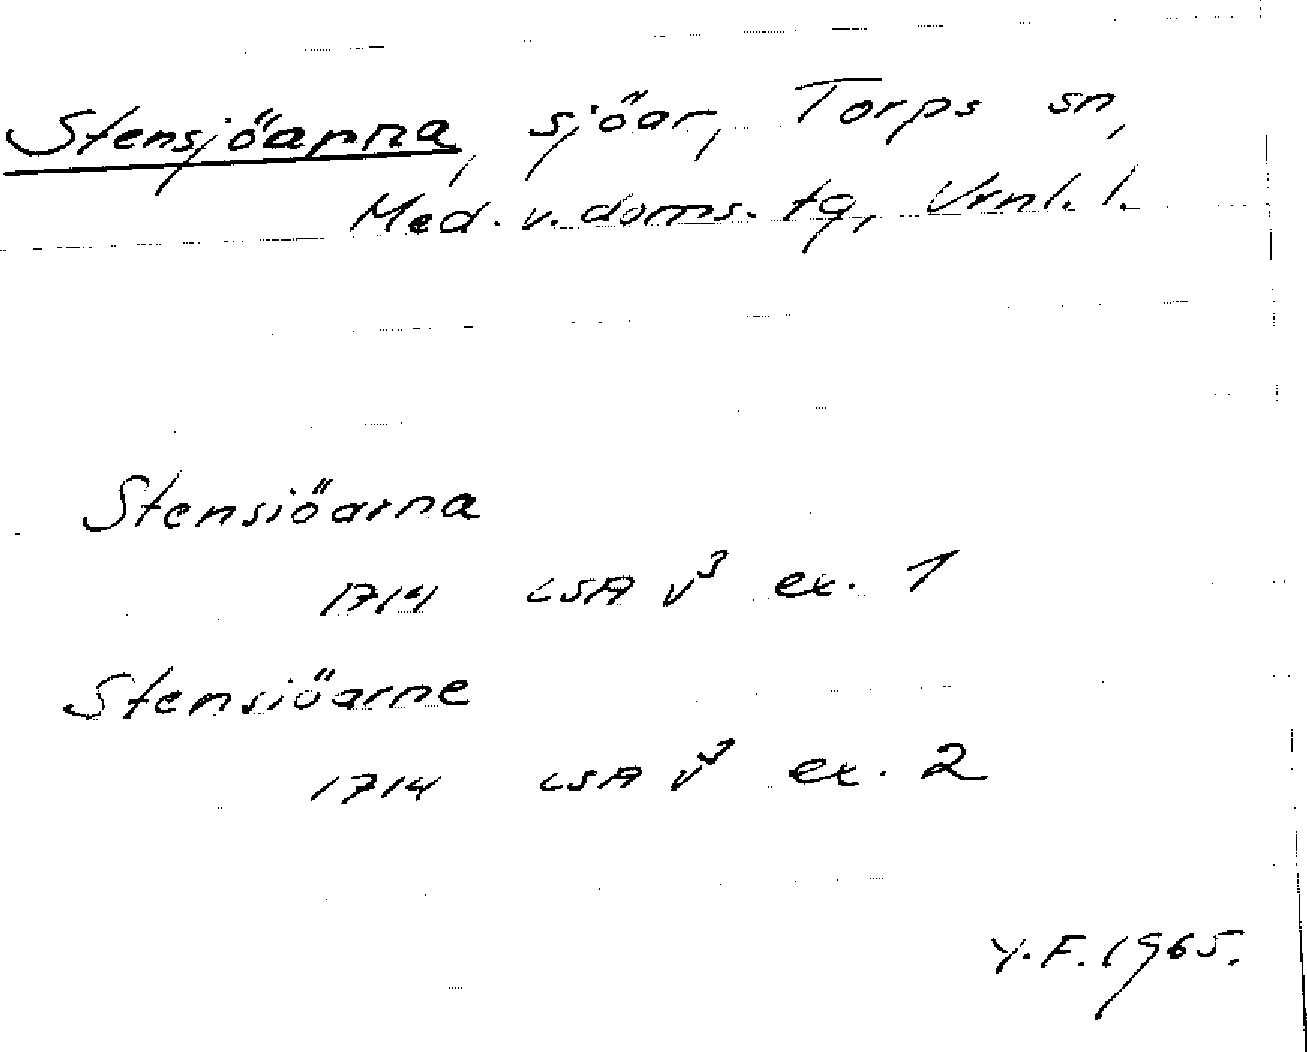 Stensjöarna, sjöar, Torps sn,
Med. v. doms. tg, Vrnl. l.
Stensiöarna
1714 LSA V³ ex. 1
Stensiöarne
1714 LSA V³ ex. 2
Y.F. 1965.